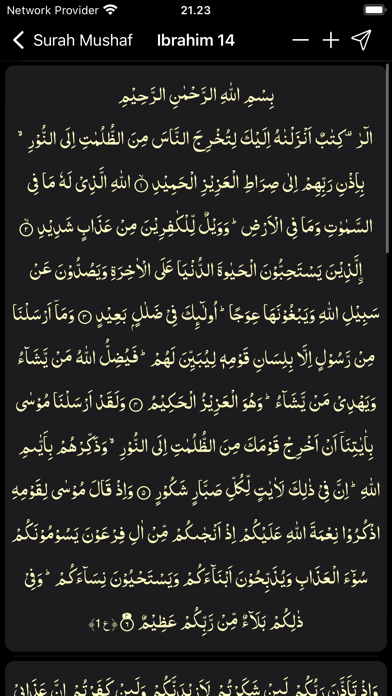 Network Provider 21.23
Surah Mushaf Ibrahim 14
بِسْمِ اللهِ الرَّحْمٰنِ الرَّحِيْمِ
الٓرٰ ۗ كِتٰبٌ اَنْزَلْنٰهُ اِلَيْكَ لِتُخْرِجَ النَّاسَ مِنَ الظُّلُمٰتِ اِلَى النُّوْرِ ۙ
بِاِذْنِ رَبِّهِمْ اِلٰى صِرَاطِ الْعَزِيْزِ الْحَمِيْدِ ۝١ اللهِ الَّذِيْ لَهٗ مَا فِى
السَّمٰوٰتِ وَمَا فِى الْاَرْضِ ۗ وَوَيْلٌ لِّلْكٰفِرِيْنَ مِنْ عَذَابٍ شَدِيْدٍ ۝٢
ۨالَّذِيْنَ يَسْتَحِبُّوْنَ الْحَيٰوةَ الدُّنْيَا عَلَى الْاٰخِرَةِ وَيَصُدُّوْنَ عَنْ
سَبِيْلِ اللهِ وَيَبْغُوْنَهَا عِوَجًا ۗ اُولٰۤىِٕكَ فِيْ ضَلٰلٍ بَعِيْدٍ ۝٣ وَمَآ اَرْسَلْنَا
مِنْ رَّسُوْلٍ اِلَّا بِلِسَانِ قَوْمِهٖ لِيُبَيِّنَ لَهُمْ ۗ فَيُضِلُّ اللهُ مَنْ يَّشَاۤءُ
وَيَهْدِيْ مَنْ يَّشَاۤءُ ۗ وَهُوَ الْعَزِيْزُ الْحَكِيْمُ ۝٤ وَلَقَدْ اَرْسَلْنَا مُوْسٰى
بِاٰيٰتِنَآ اَنْ اَخْرِجْ قَوْمَكَ مِنَ الظُّلُمٰتِ اِلَى النُّوْرِ ۙ وَذَكِّرْهُمْ بِاَيّٰىمِ
اللهِ ۗ اِنَّ فِيْ ذٰلِكَ لَاٰيٰتٍ لِّكُلِّ صَبَّارٍ شَكُوْرٍ ۝٥ وَاِذْ قَالَ مُوْسٰى لِقَوْمِهِ
اذْكُرُوْا نِعْمَةَ اللهِ عَلَيْكُمْ اِذْ اَنْجٰىكُمْ مِّنْ اٰلِ فِرْعَوْنَ يَسُوْمُوْنَكُمْ
سُوْۤءَ الْعَذَابِ وَيُذَبِّحُوْنَ اَبْنَاۤءَكُمْ وَيَسْتَحْيُوْنَ نِسَاۤءَكُمْ ۗ وَفِيْ
ذٰلِكُمْ بَلَاۤءٌ مِّنْ رَّبِّكُمْ عَظِيْمٌ ۝٦ ﴿ع 1﴾
وَاِذْ تَاَذَّنَ رَبُّكُمْ لَىِٕنْ شَكَرْتُمْ لَاَزِيْدَنَّكُمْ وَلَىِٕنْ كَفَرْتُمْ اِنَّ عَذَابِيْ